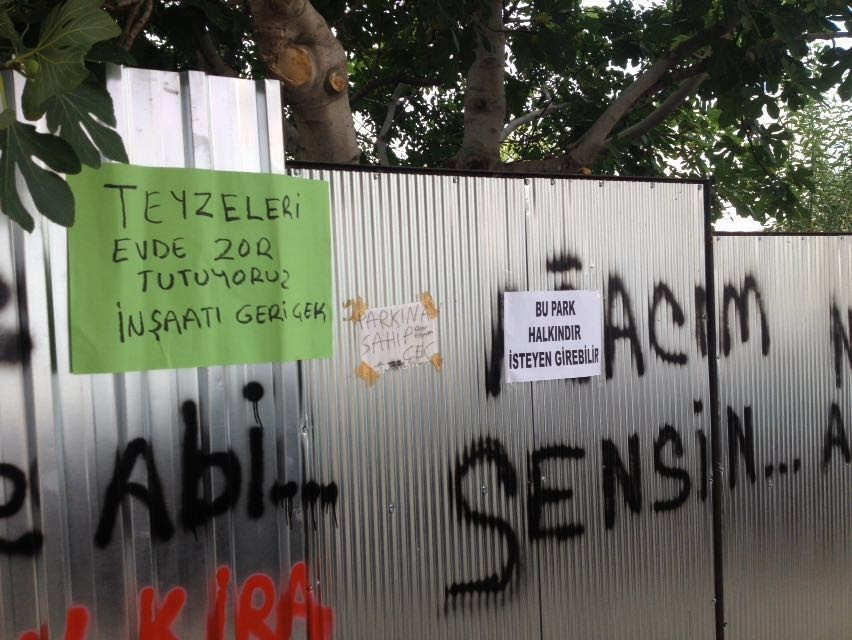 TEYZELERİ
EVDE ZOR
TUTUYORUZ
İNŞAATI GERİ ÇEK
PARKINA
SAHİP
ÇEK
BU PARK
HALKINDIR
İSTEYEN GİREBİLİR
İLACIM
Abi...
SENSİN... A
KIRA